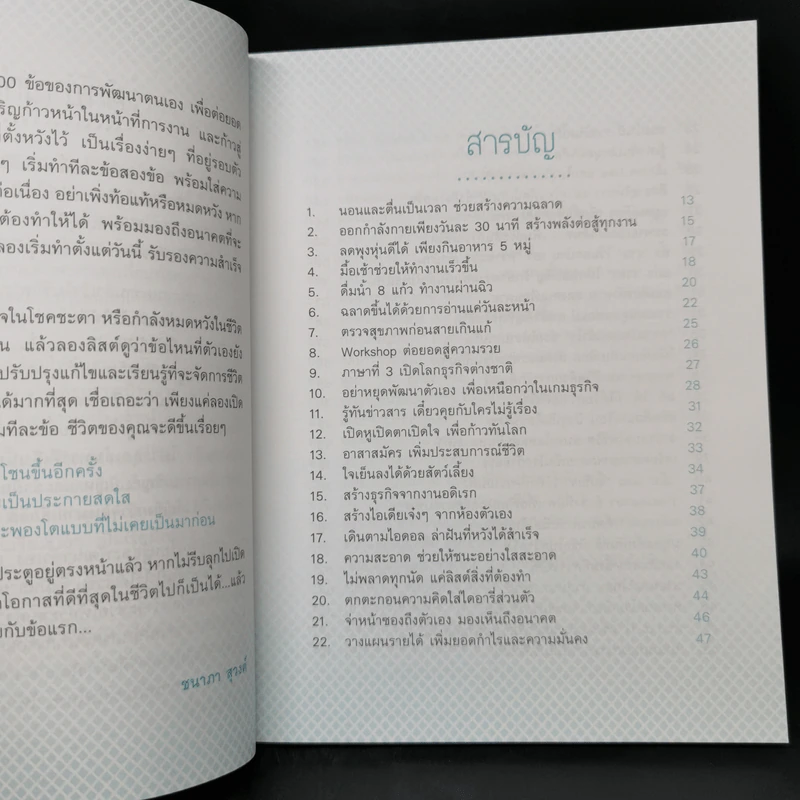 00 ข้อของการพัฒนาตนเอง เพื่อต่อยอด
ริญก้าวหน้าในหน้าที่การงาน และก้าวสู่
ที่ตั้งหวังไว้ เป็นเรื่องง่ายๆ ที่อยู่รอบตัว
ๆ เริ่มทำทีละข้อสองข้อ พร้อมใส่ความ
่อเนื่อง อย่าเพิ่งท้อแท้หรือหมดหวัง หาก
ต้องทำให้ได้ พร้อมมองถึงอนาคตที่จะ
ลองเริ่มทำตั้งแต่วันนี้ รับรองความสำเร็จ
จในโชคชะตา หรือกำลังหมดหวังในชีวิต
น แล้วลองลิสต์ดูว่าข้อไหนที่ตัวเองยัง
ปรับปรุงแก้ไขและเรียนรู้ที่จะจัดการชีวิต
ได้มากที่สุด เชื่อเถอะว่า เพียงแค่ลองเปิด
มทีละข้อ ชีวิตของคุณจะดีขึ้นเรื่อยๆ
โชนขึ้นอีกครั้ง
เป็นประกายสดใส
ะพองโตแบบที่ไม่เคยเป็นมาก่อน
ประตูอยู่ตรงหน้าแล้ว หากไม่รีบลุกไปเปิด
โอกาสที่ดีที่สุดในชีวิตไปก็เป็นได้...แล้ว
งกับข้อแรก...
ชนาภา สุวงค์
สารบัญ
1. นอนและตื่นเป็นเวลา ช่วยสร้างความฉลาด 13
2. ออกกำลังกายเพียงวันละ 30 นาที สร้างพลังต่อสู้ทุกงาน 15
3. ลดพุงหุ่นดีได้ เพียงกินอาหาร 5 หมู่ 17
4. มื้อเช้าช่วยให้ทำงานเร็วขึ้น 18
5. ดื่มน้ำ 8 แก้ว ทำงานผ่านฉิว 20
6. ฉลาดขึ้นได้ด้วยการอ่านแค่วันละหน้า 22
7. ตรวจสุขภาพก่อนสายเกินแก้ 25
8. Workshop ต่อยอดสู่ความรวย 26
9. ภาษาที่ 3 เปิดโลกธุรกิจต่างชาติ 27
10. อย่าหยุดพัฒนาตัวเอง เพื่อเหนือกว่าในเกมธุรกิจ 28
11. รู้ทันข่าวสาร เดี๋ยวคุยกับใครไม่รู้เรื่อง 31
12. เปิดหูเปิดตาเปิดใจ เพื่อก้าวทันโลก 32
13. อาสาสมัคร เพิ่มประสบการณ์ชีวิต 33
14. ใจเย็นลงได้ด้วยสัตว์เลี้ยง 34
15. สร้างธุรกิจจากงานอดิเรก 37
16. สร้างไอเดียเจ๋งๆ จากห้องตัวเอง 38
17. เดินตามไอดอล ล่าฝันที่หวังได้สำเร็จ 39
18. ความสะอาด ช่วยให้ชนะอย่างใสสะอาด 40
19. ไม่พลาดทุกนัด แค่ลิสต์สิ่งที่ต้องทำ 43
20. ตกตะกอนความคิดใส่ไดอารี่ส่วนตัว 44
21. จ่าหน้าซองถึงตัวเอง มองเห็นถึงอนาคต 46
22. วางแผนรายได้ เพิ่มยอดกำไรและความมั่นคง 47